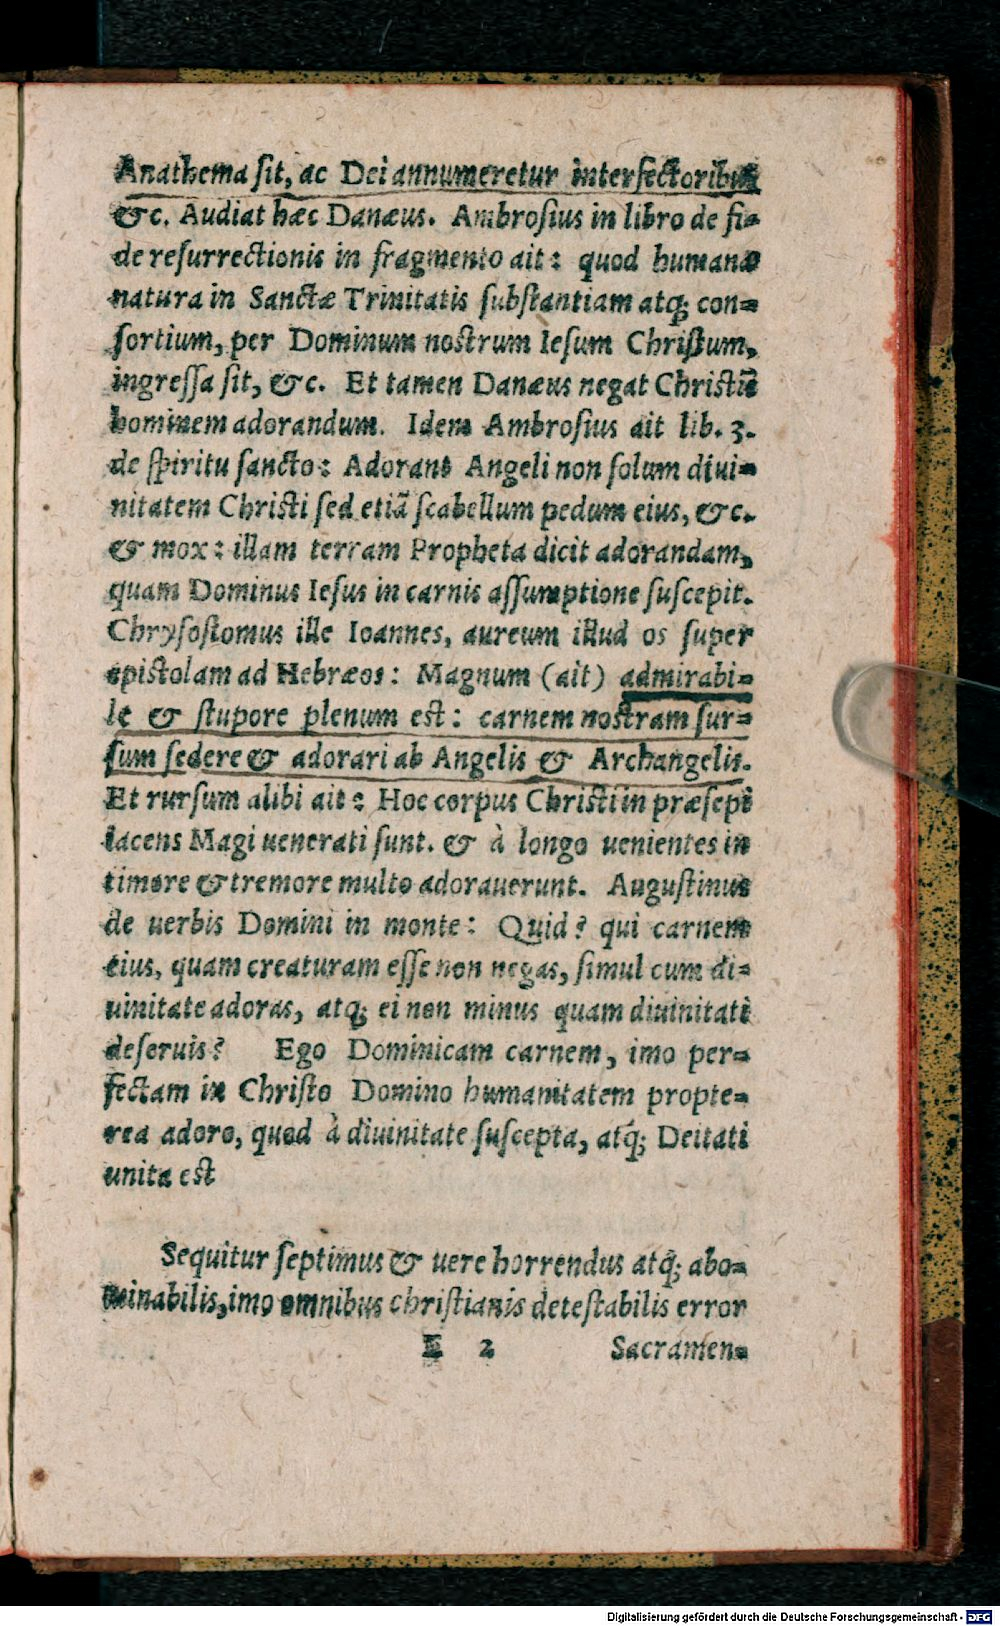 Anathema ſit, ac Dei annumeretur interfectoribus
&c. Audiat hæc Danæus. Ambroſius in libro de fi=
de reſurrectionis in fragmento ait: quod humana
natura in Sanctæ Trinitatis ſubſtantiam atq; con=
ſortium, per Dominum noſtrum Ieſum Chriſtum,
ingreſſa ſit, &c. Et tamen Danæus negat Chriſtū
hominem adorandum. Idem Ambroſius ait lib. 3.
de ſpiritu ſancto: Adorant Angeli non ſolum diui=
nitatem Chriſti ſed etiā ſcabellum pedum eius, &c.
& mox: illam terram Propheta dicit adorandam,
quam Dominus Ieſus in carnis aſſumptione ſuſcepit.
Chryſoſtomus ille Ioannes, aureum illud os ſuper
epiſtolam ad Hebræos: Magnum (ait) admirabi=
le & ſtupore plenum eſt: carnem noſtram ſur=
ſum ſedere & adorari ab Angelis & Archangelis.
Et rurſum alibi ait: Hoc corpus Chriſti in præſepi
iacens Magi uenerati ſunt. & à longo uenientes in
timore & tremore multo adorauerunt. Auguſtinus
de uerbis Domini in monte: Quid? qui carnem
eius, quam creaturam eſſe non negas, ſimul cum di=
uinitate adoras, atq; ei non minus quam diuinitati
deſeruis? Ego Dominicam carnem, imo per=
fectam in Chriſto Domino humanitatem propte=
rea adoro, quod à diuinitate ſuſcepta, atq́; Deitati
unita eſt
Sequitur ſeptimus & uere horrendus atq; abo=
minabilis, imo omnibus chriſtianis deteſtabilis error
E 2 Sacramen=
Digitalisierung gefördert durch die Deutsche Forschungsgemeinschaft - DFG